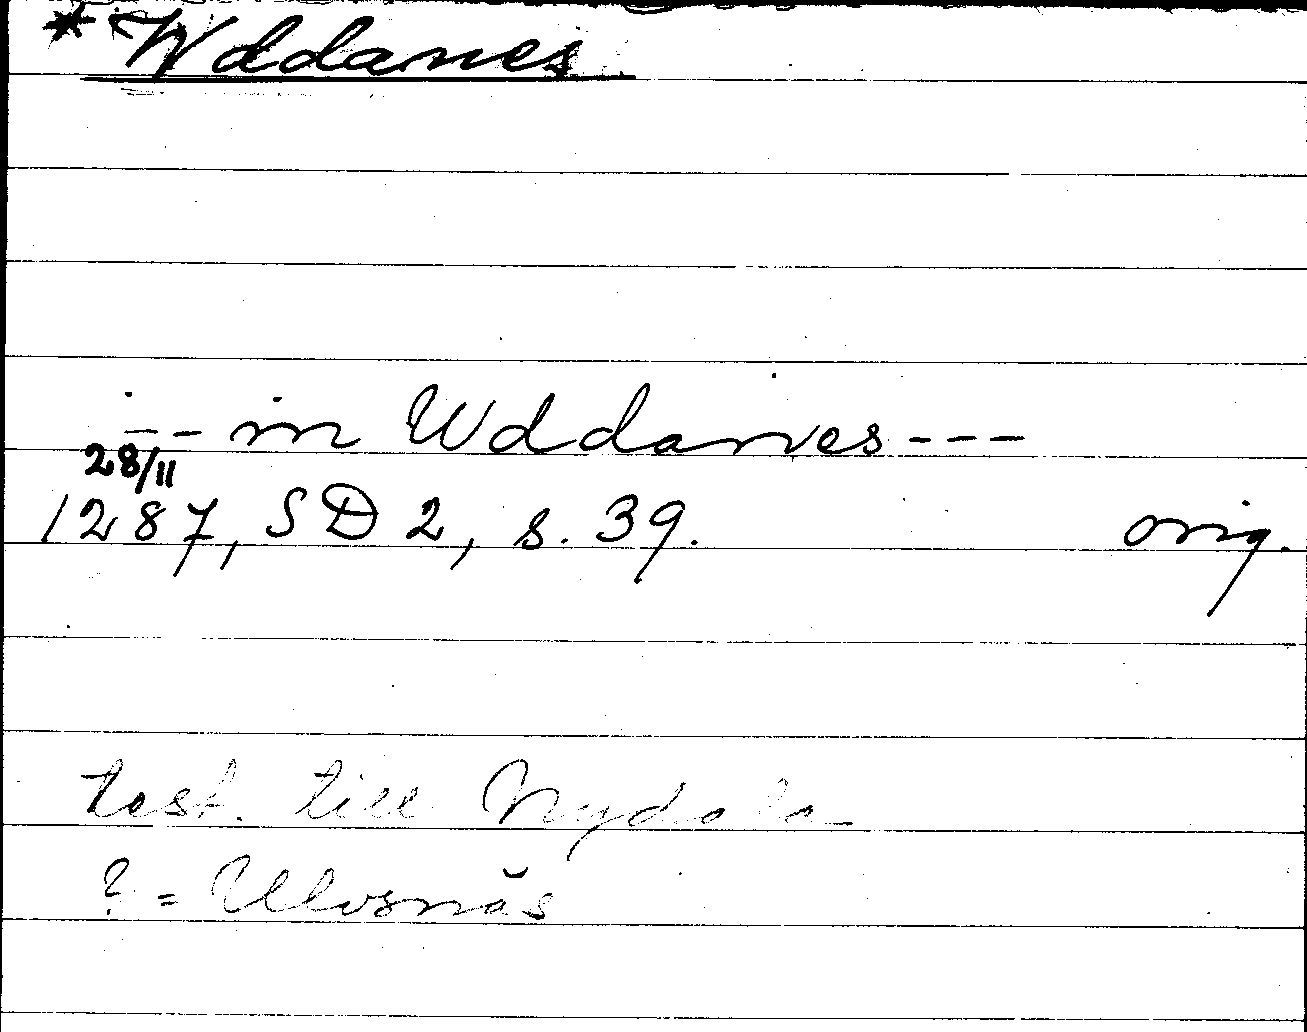 * Wddanes
--- in Wddanes ---
28/11
1287, SD 2, s. 39. orig.
test. till Nydala
? = Ulvsnäs